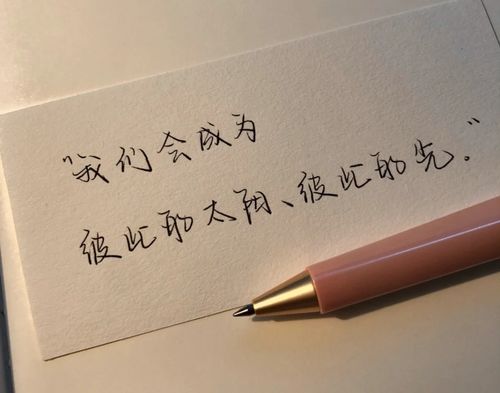 “我们会成为
彼此的太阳、彼此的光。”